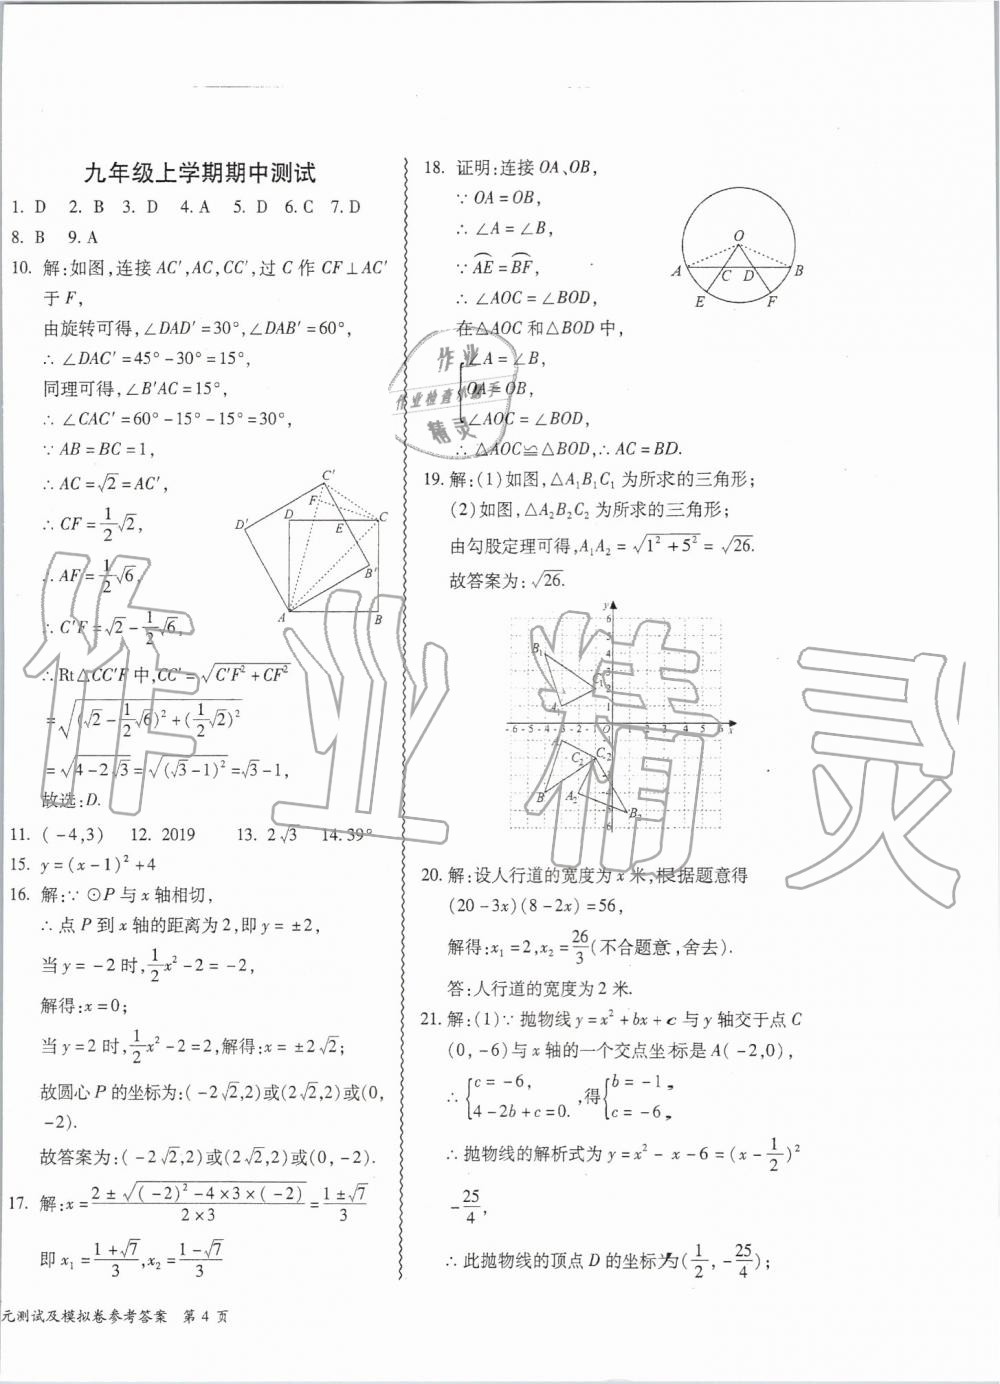 九年级上学期期中测试
1. D  2. B  3. D  4. A  5. D  6. C  7. D
8. B  9. A
10. 解:如图,连接 AC′,AC,CC′,过 C 作 CF⊥AC′
于 F,
由旋转可得,∠DAD′=30°,∠DAB′=60°,
∴∠DAC′=45°-30°=15°,
同理可得,∠B′AC=15°,
∴∠CAC′=60°-15°-15°=30°,
∵AB=BC=1,
∴AC=√2=AC′,
∴CF=1/2√2,
∴AF=1/2√6,
∴C′F=√2-1/2√6,
∴Rt△CC′F 中,CC′=√(C′F²+CF²)
=√((√2-1/2√6)²+(1/2√2)²)
=√(4-2√3)=√((√3-1)²)=√3-1,
故选:D.
C′
F
D
E
C
D′
B′
A
B
11. (-4,3)  12. 2019  13. 2√3  14. 39°
15. y=(x-1)²+4
16. 解:∵⊙P 与 x 轴相切,
∴点 P 到 x 轴的距离为 2,即 y=±2,
当 y=-2 时,1/2x²-2=-2,
解得:x=0;
当 y=2 时,1/2x²-2=2,解得:x=±2√2;
故圆心 P 的坐标为:(-2√2,2)或(2√2,2)或(0,
-2).
故答案为:(-2√2,2)或(2√2,2)或(0,-2).
17. 解:x=(2±√((-2)²-4×3×(-2)))/(2×3)=(1±√7)/3
即 x₁=(1+√7)/3,x₂=(1-√7)/3
元测试及模拟卷参考答案 第 4 页
18. 证明:连接 OA、OB,
∵OA=OB,
∴∠A=∠B,
∵A͡E=B͡F,
∴∠AOC=∠BOD,
在△AOC 和△BOD 中,
∠A=∠B,
OA=OB,
∠AOC=∠BOD,
∴△AOC≌△BOD,∴AC=BD.
O
A
C
D
B
E
F
作业
作业检查小助手
精灵
19. 解:(1)如图,△A₁B₁C₁ 为所求的三角形;
(2)如图,△A₂B₂C₂ 为所求的三角形;
由勾股定理可得,A₁A₂=√(1²+5²)=√26.
故答案为:√26.
y
6
B₁
C₁
A₁
-6 -5 -4 -3 -2 -1 O 1 2 3 4 5 6 x
A
C
C₂
B
A₂
B₂
20. 解:设人行道的宽度为 x 米,根据题意得
(20-3x)(8-2x)=56,
解得:x₁=2,x₂=26/3(不合题意,舍去).
答:人行道的宽度为 2 米.
21. 解:(1)∵抛物线 y=x²+bx+c 与 y 轴交于点 C
(0,-6)与 x 轴的一个交点坐标是 A(-2,0),
∴{c=-6, 4-2b+c=0. ,得{b=-1, c=-6,
∴抛物线的解析式为 y=x²-x-6=(x-1/2)²
-25/4,
∴此抛物线的顶点 D 的坐标为(1/2,-25/4);
作业精灵